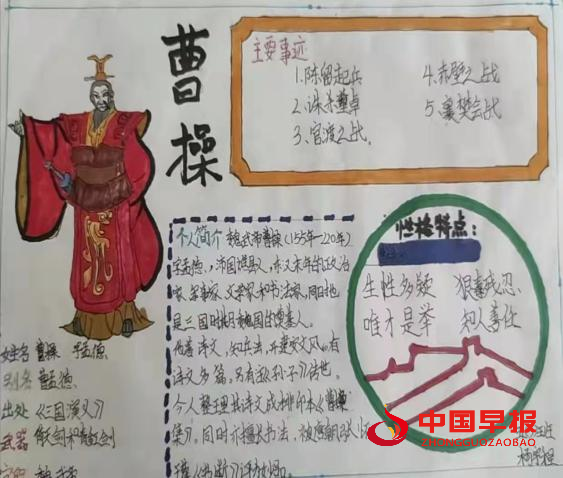 曹操
主要事迹
1.陈留起兵
2.诛杀董卓
3.官渡之战。
4.赤壁之战
5.襄樊会战
个人简介 魏武帝曹操(155年—220年)
字孟德,沛国谯县人,东汉末年的政治
家、军事家、文学家和书法家,同时也
是三国时期魏国的奠基人。
诗文多篇,另有注《孙子》传世。
今人整理其诗文成排印本《曹操
集》。同时亦擅长书法,
性格特点:
生性多疑 狠毒残忍
唯才是举 知人善任
姓名 曹操 孟德
别名 曹孟德
出处 《三国演义》
武器 倚天剑和青釭剑
中国早报
ZHONGGUOZAOBAO